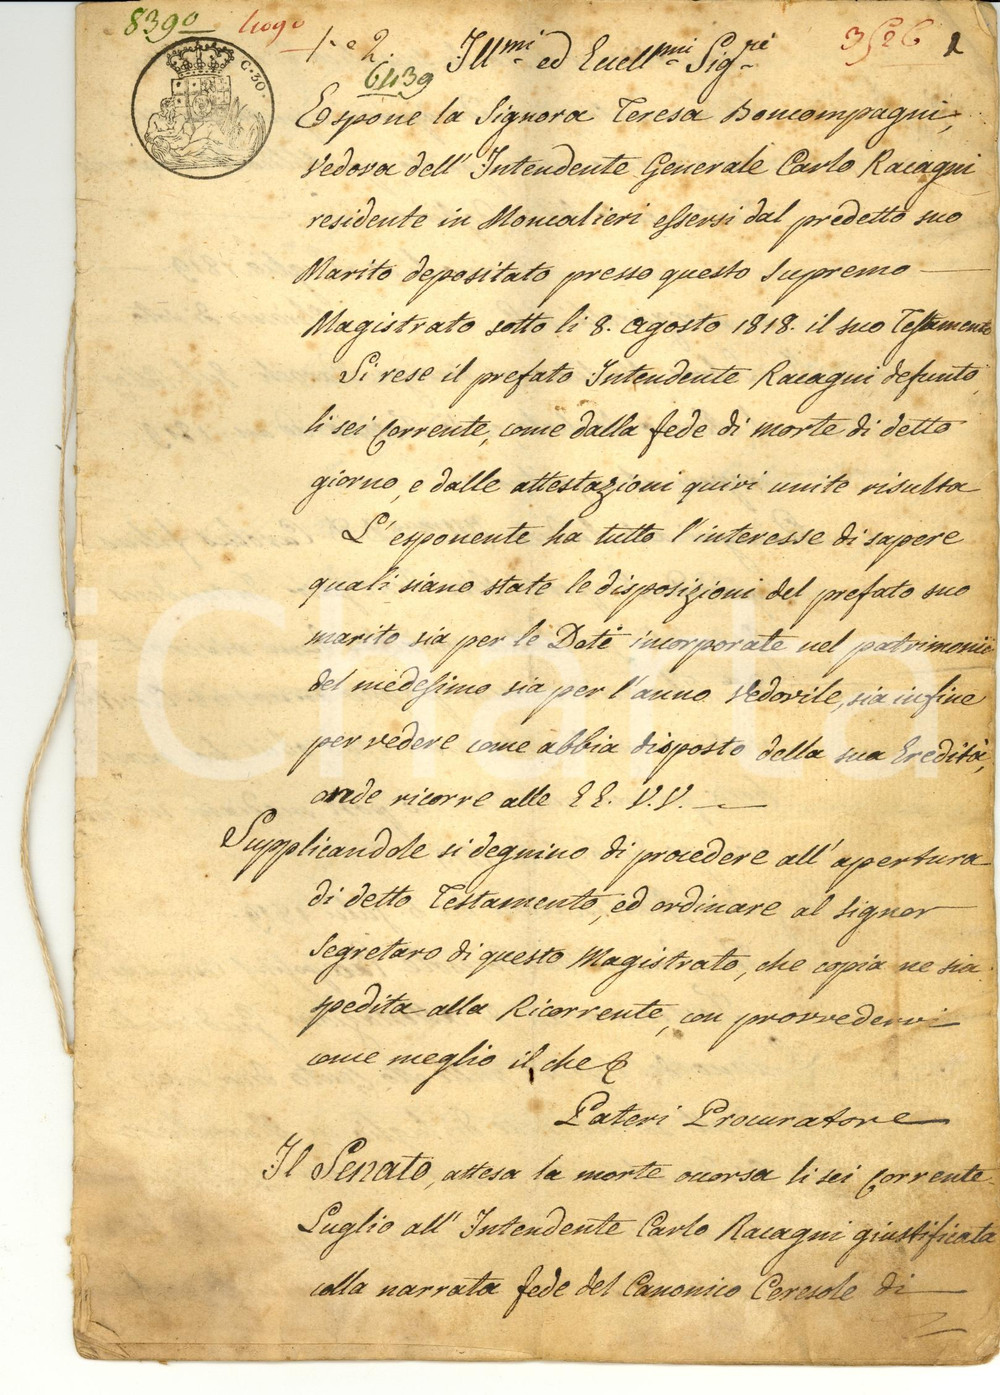 8390
1. e 2.
3526
1
6439
C. 30.
Ill.mi ed Eccell.mi Sig.ri
Espone la Signora Teresa Boncompagni,
vedova dell'Intendente Generale Carlo Racagni
residente in Moncalieri essersi dal predetto suo
Marito depositato presso questo Supremo
Magistrato sotto li 8. Agosto 1818. il suo Testamento
Si rese il prefato Intendente Racagni defunto,
li sei Corrente, come dalla fede di morte di detto
giorno, e dalle attestazioni quivi unite risulta
L'esponente ha tutto l'interesse di sapere
quali siano state le disposizioni del prefato suo
marito sia per le Doti incorporate nel patrimonio
del medesimo sia per l'anno Vedovile, sia infine
per vedere come abbia disposto della sua Eredità,
onde ricorre alle EE. V.V.
Supplicandole si degnino di procedere all'apertura
di detto Testamento, ed ordinare al signor
Segretaro di questo Magistrato, che copia ne sia
spedita alla Ricorrente, con provvedervi
come meglio il che &
Pateri Procuratore
Il Senato, attesa la morte occorsa li sei Corrente
Luglio all'Intendente Carlo Racagni giustificata
colla narrata fede del Canonico Ceresole di